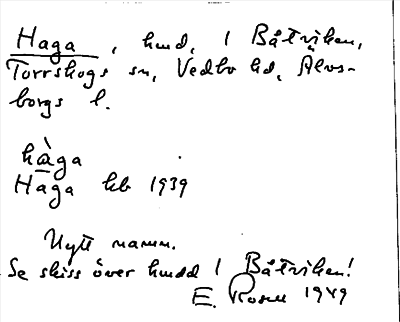 Haga, hmd, 1 Båtviken,
Torrskogs sn, Vedbo hd, Älvs-
borgs l.
hàga
Haga kb 1939
Nytt namn.
Se skiss över hmdd 1 Båtviken!
E. Rosell 1949